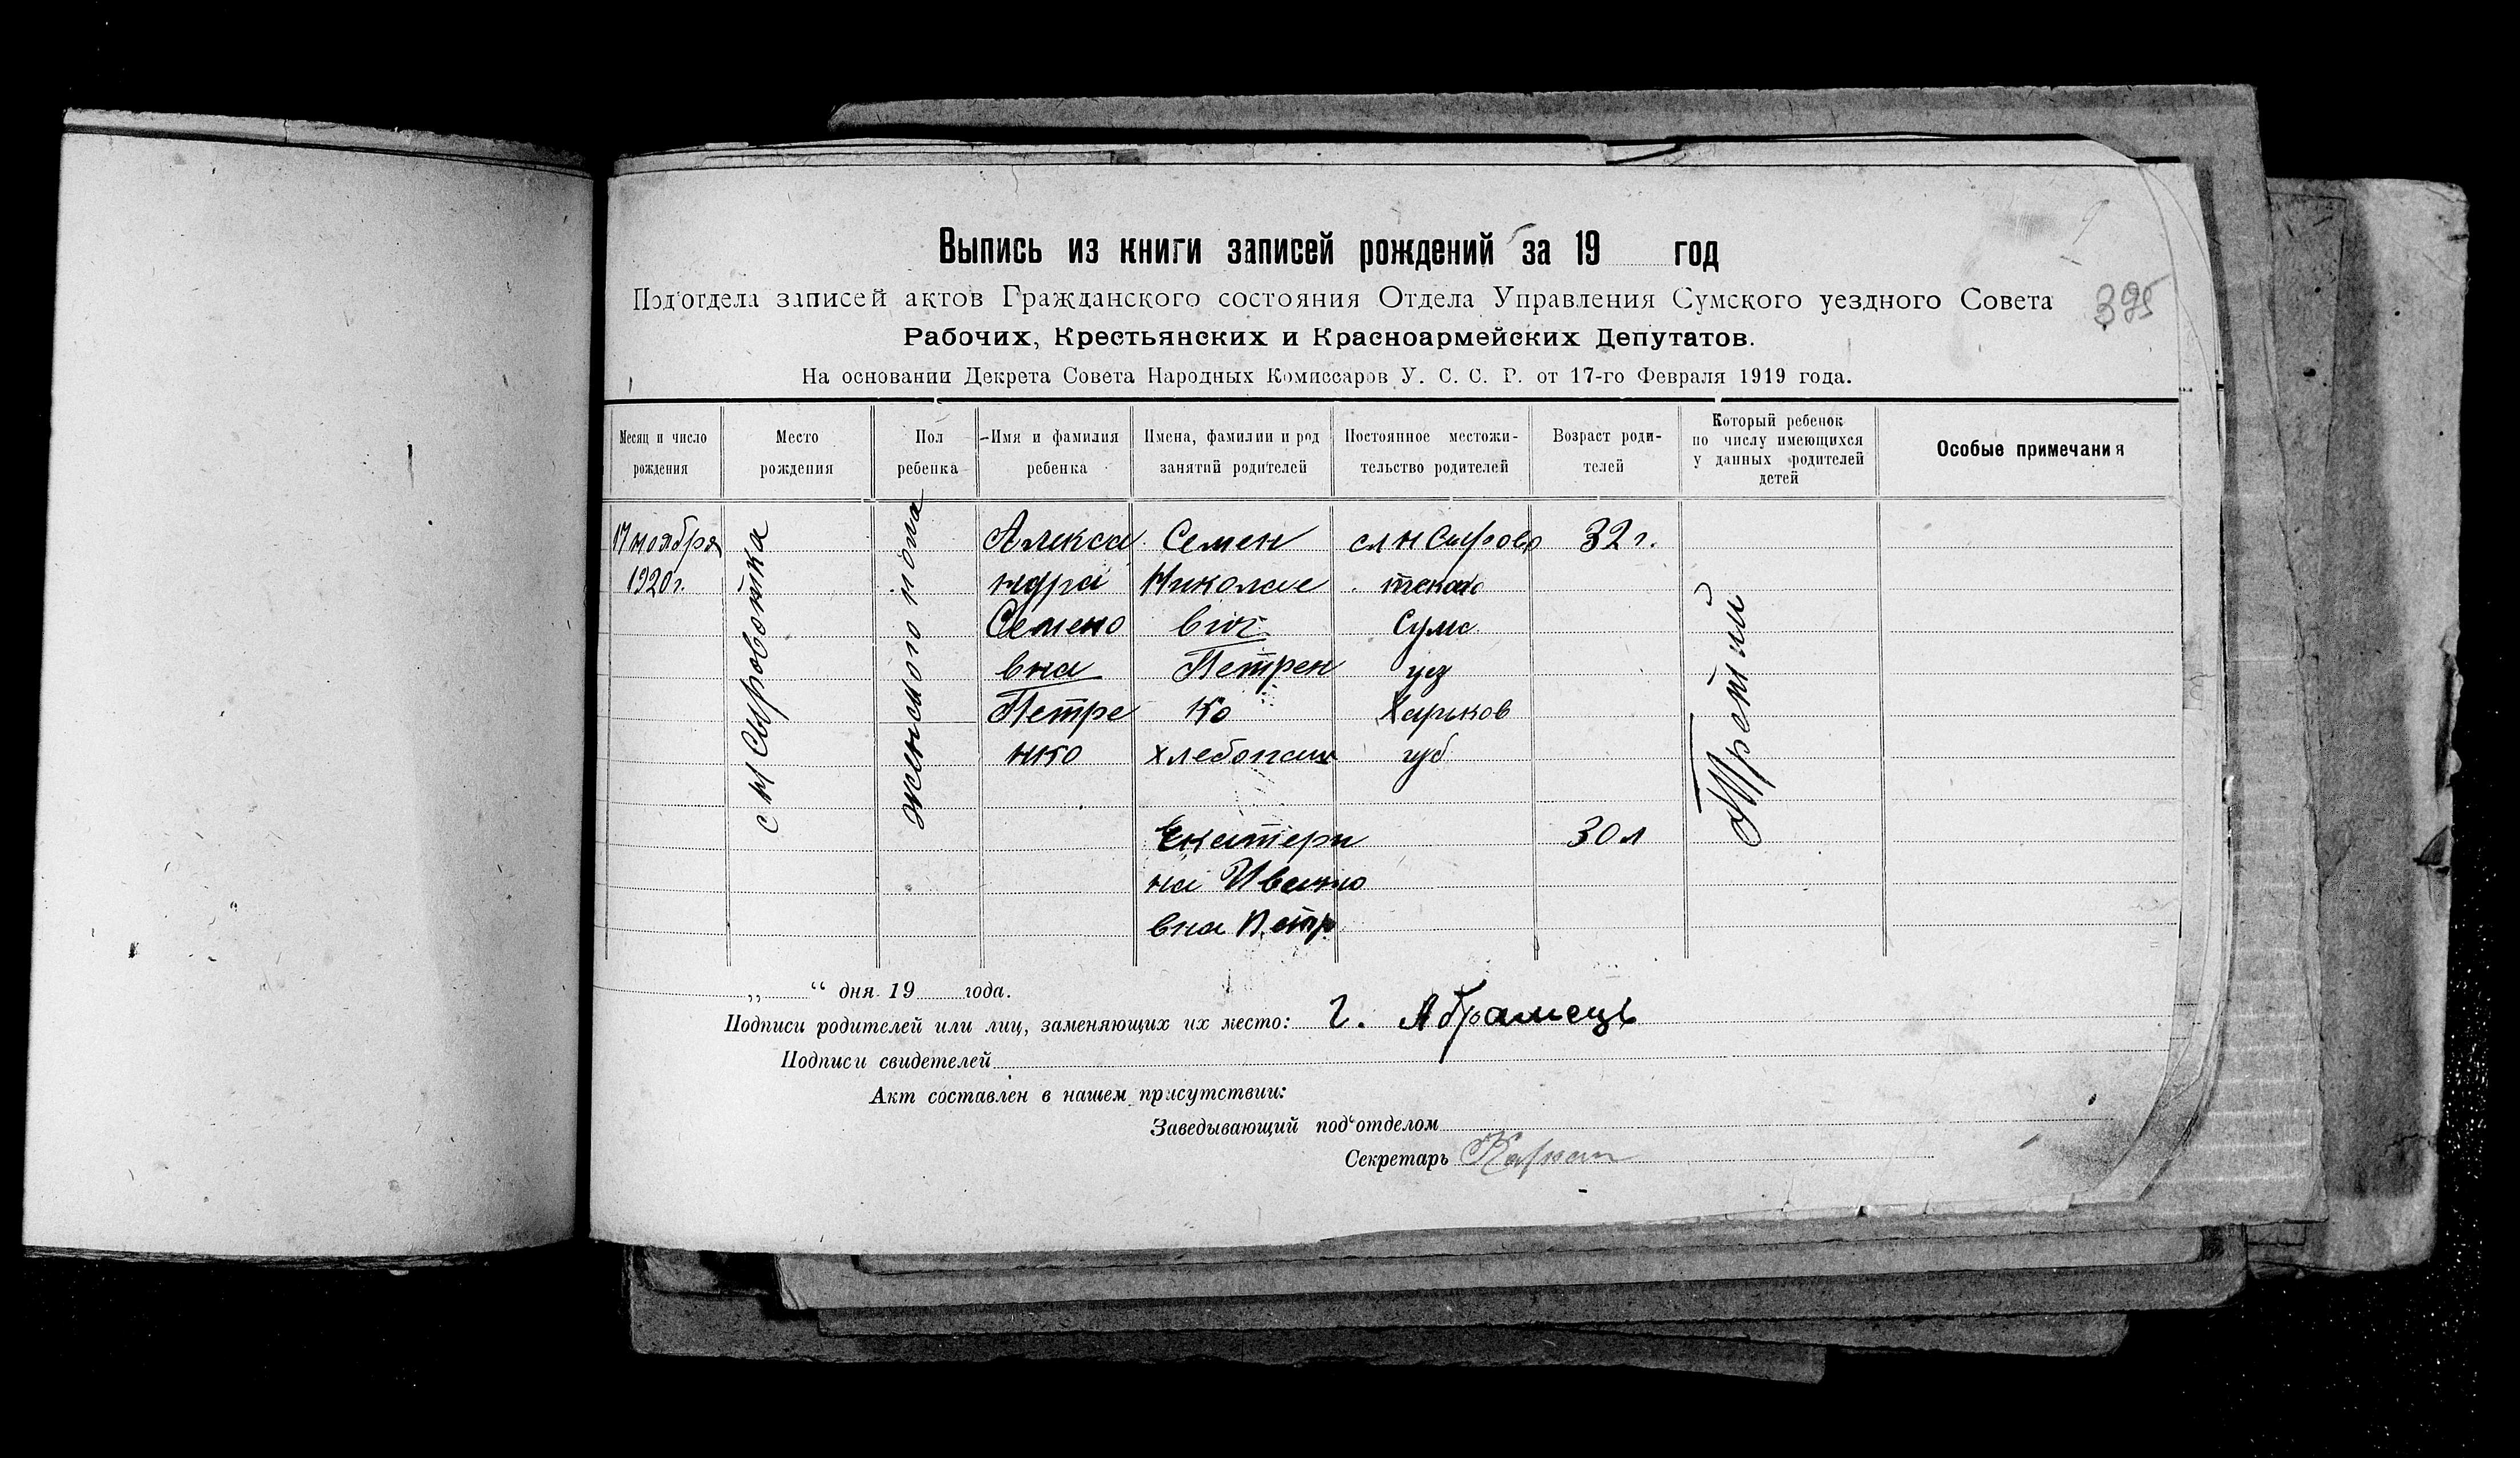 Выпись из книги записей рождений за 19 год
395
Под'отдела записей актов Гражданского состояния Отдела Управления Сумского уездного Совета
Рабочих, Крестьянских и Красноармейских Депутатов.
На основании Декрета Совета Народных Комиссаров У. С. С. Р. от 17-го Февраля 1919 года.
Месяц и число рождения
Место рождения
Пол ребенка
Имя и фамилия ребенка
Имена, фамилии и род занятий родителей
Постоянное местожительство родителей
Возраст родителей
Который ребенок по числу имеющихся у данных родителей детей
Особые примечания
17 ноября
1920 г.
с Н Сыроватка
женского пола
Алекса
ндра
Семено
вна
Петре
нко
Семен
Николае
вич
Петрен
ко
хлебопаш
Екатери
на Ивано
вна Петр
сл Н Сырова
Сумс
уез
Харьков
губ
32 г.
30 л
Третий
„ “ дня 19 года.
Подписи родителей или лиц, заменяющих их место: Г. Абрамець
Подписи свидетелей
Акт составлен в нашем присутствии:
Заведывающий под'отделом
Секретарь